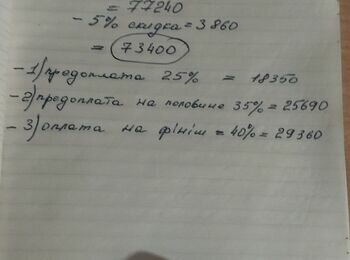 = 77240
- 5% скидка = 3860
= 73400
- 1) предоплата 25% = 18350
- 2) предоплата на половине 35% = 25690
- 3) оплата на фініш = 40% = 29360